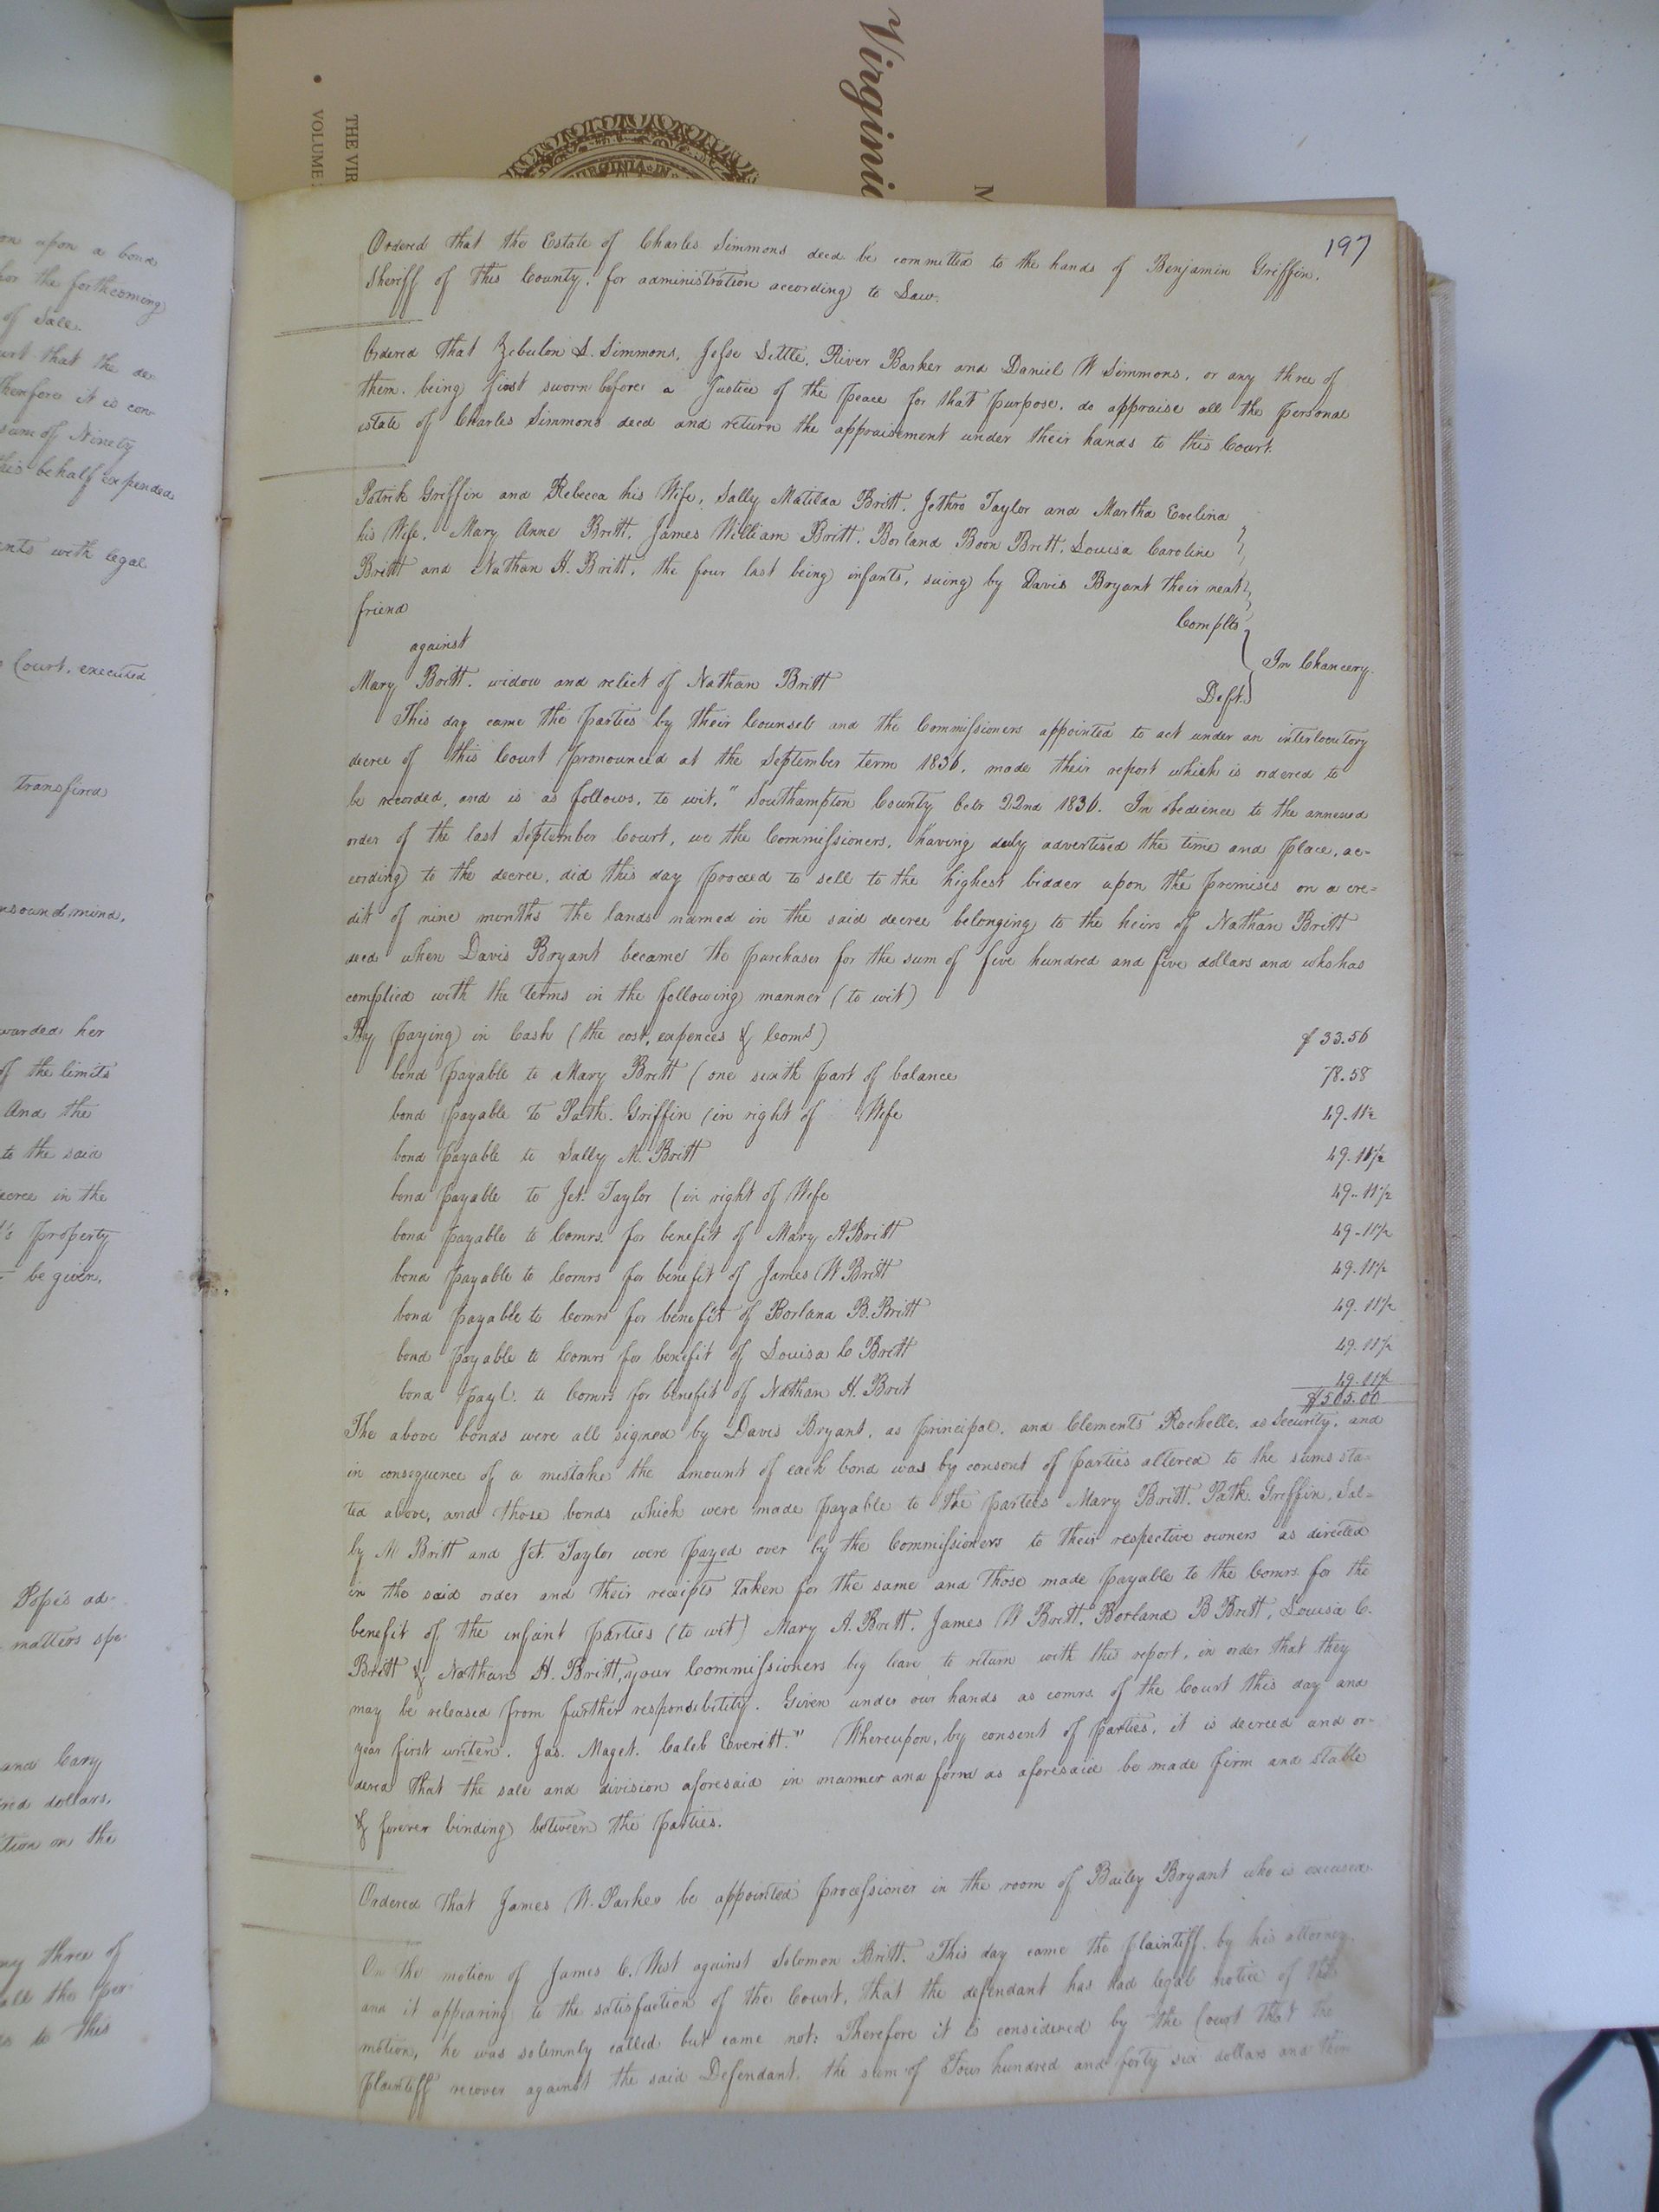 Virgini
THE VIR
VOLUME
M
VIRGINIA IN
197
Ordered that the Estate of Charles Simmons decd be committed to the hands of Benjamin Griffin.
Sheriff of this County, for administration according to Law.
Ordered that Zebulon S. Simmons, Jesse Little, River Barker and Daniel W Simmons, or any three of
them, being first sworn before a Justice of the peace for that purpose, do appraise all the personal
estate of Charles Simmons decd and return the appraisement under their hands to this Court.
Patrick Griffin and Rebecca his Wife, Sally Matilda Britt, Jethro Taylor and Martha Evelina
his Wife, Mary Anne Britt, James William Britt, Borland Boon Britt, Louisa Caroline
Britt and Nathan H. Britt, the four last being infants, suing by Davis Bryant their next
friend
Complts
against
In Chancery.
Mary Britt, widow and relict of Nathan Britt
Deft.
This day came the Parties by their Counsels and the Commissioners appointed to act under an interlocutory
decree of this Court pronounced at the September term 1836, made their report which is ordered to
be recorded, and is as follows, to wit, " Southampton County Octr 22nd 1836. In obedience to the annexed
order of the last September Court, we the Commissioners, having duly advertised the time and place, ac-
cording to the decree, did this day proceed to sell to the highest bidder upon the premises on a cre-
dit of nine months the lands named in the said decree belonging to the heirs of Nathan Britt
decd when Davis Bryant became the purchaser for the sum of five hundred and five dollars and who has
complied with the terms in the following manner (to wit)
By paying in Cash (the cost, expences & Coms) $ 33.56
bond payable to Mary Britt (one sixth part of balance 78.58
bond payable to Patk. Griffin (in right of Wife 49.11½
bond payable to Sally M. Britt 49.11½
bond payable to Jet. Taylor (in right of Wife 49.11½
bond payable to Comrs. for benefit of Mary A Britt 49.11½
bond payable to Comrs for benefit of James W Britt 49.11½
bond payable to Comrs for benefit of Borland B. Britt 49.11½
bond payable to Comrs for benefit of Louisa C Britt 49.11½
bond payl. to Comrs. for benefit of Nathan H. Britt 49.11½
$505.00
The above bonds were all signed by Davis Bryant, as principal, and Clements Rochelle, as Security, and
in consequence of a mistake the amount of each bond was by consent of parties altered to the sums sta-
ted above, and those bonds which were made payable to the parties Mary Britt, Patk. Griffin, Sal-
ly M Britt and Jet. Taylor were payed over by the Commissioners to their respective owners as directed
in the said order and their receipts taken for the same and those made payable to the Comrs. for the
benefit of the infant parties (to wit) Mary A. Britt, James W Britt, Borland B Britt, Louisa C.
Britt & Nathan H. Britt, your Commissioners beg leave to return with this report, in order that they
may be released from further responsibility. Given under our hands as comrs. of the Court this day and
year first writen. Jas. Maget. Caleb Everitt." Whereupon, by consent of parties, it is decreed and or-
dered that the sale and division aforesaid in manner and form as aforesaid be made firm and stable
& forever binding between the parties.
Ordered that James W. Parker be appointed processioner in the room of Bailey Bryant who is excused.
On the motion of James C. West against Solomon Britt. This day came the plaintiff by his attorney
and it appearing to the satisfaction of the Court, that the defendant has had legal notice of this
motion, he was solemnly called but came not: Therefore it is considered by the Court that the
plaintiff recover against the said Defendant, the sum of Four hundred and forty six dollars and
on upon a bond
for the forthcoming
of Sale.
that the de-
Therefore it is con-
sum of Ninety
his behalf expended
with legal
Court, executed
transfered
unsound mind,
her
of the limits
And the
to the said
decree in the
property
be given,
Pope's ad-
matters spe-
and Cary
dollars,
on the
any three of
all the per-
to this